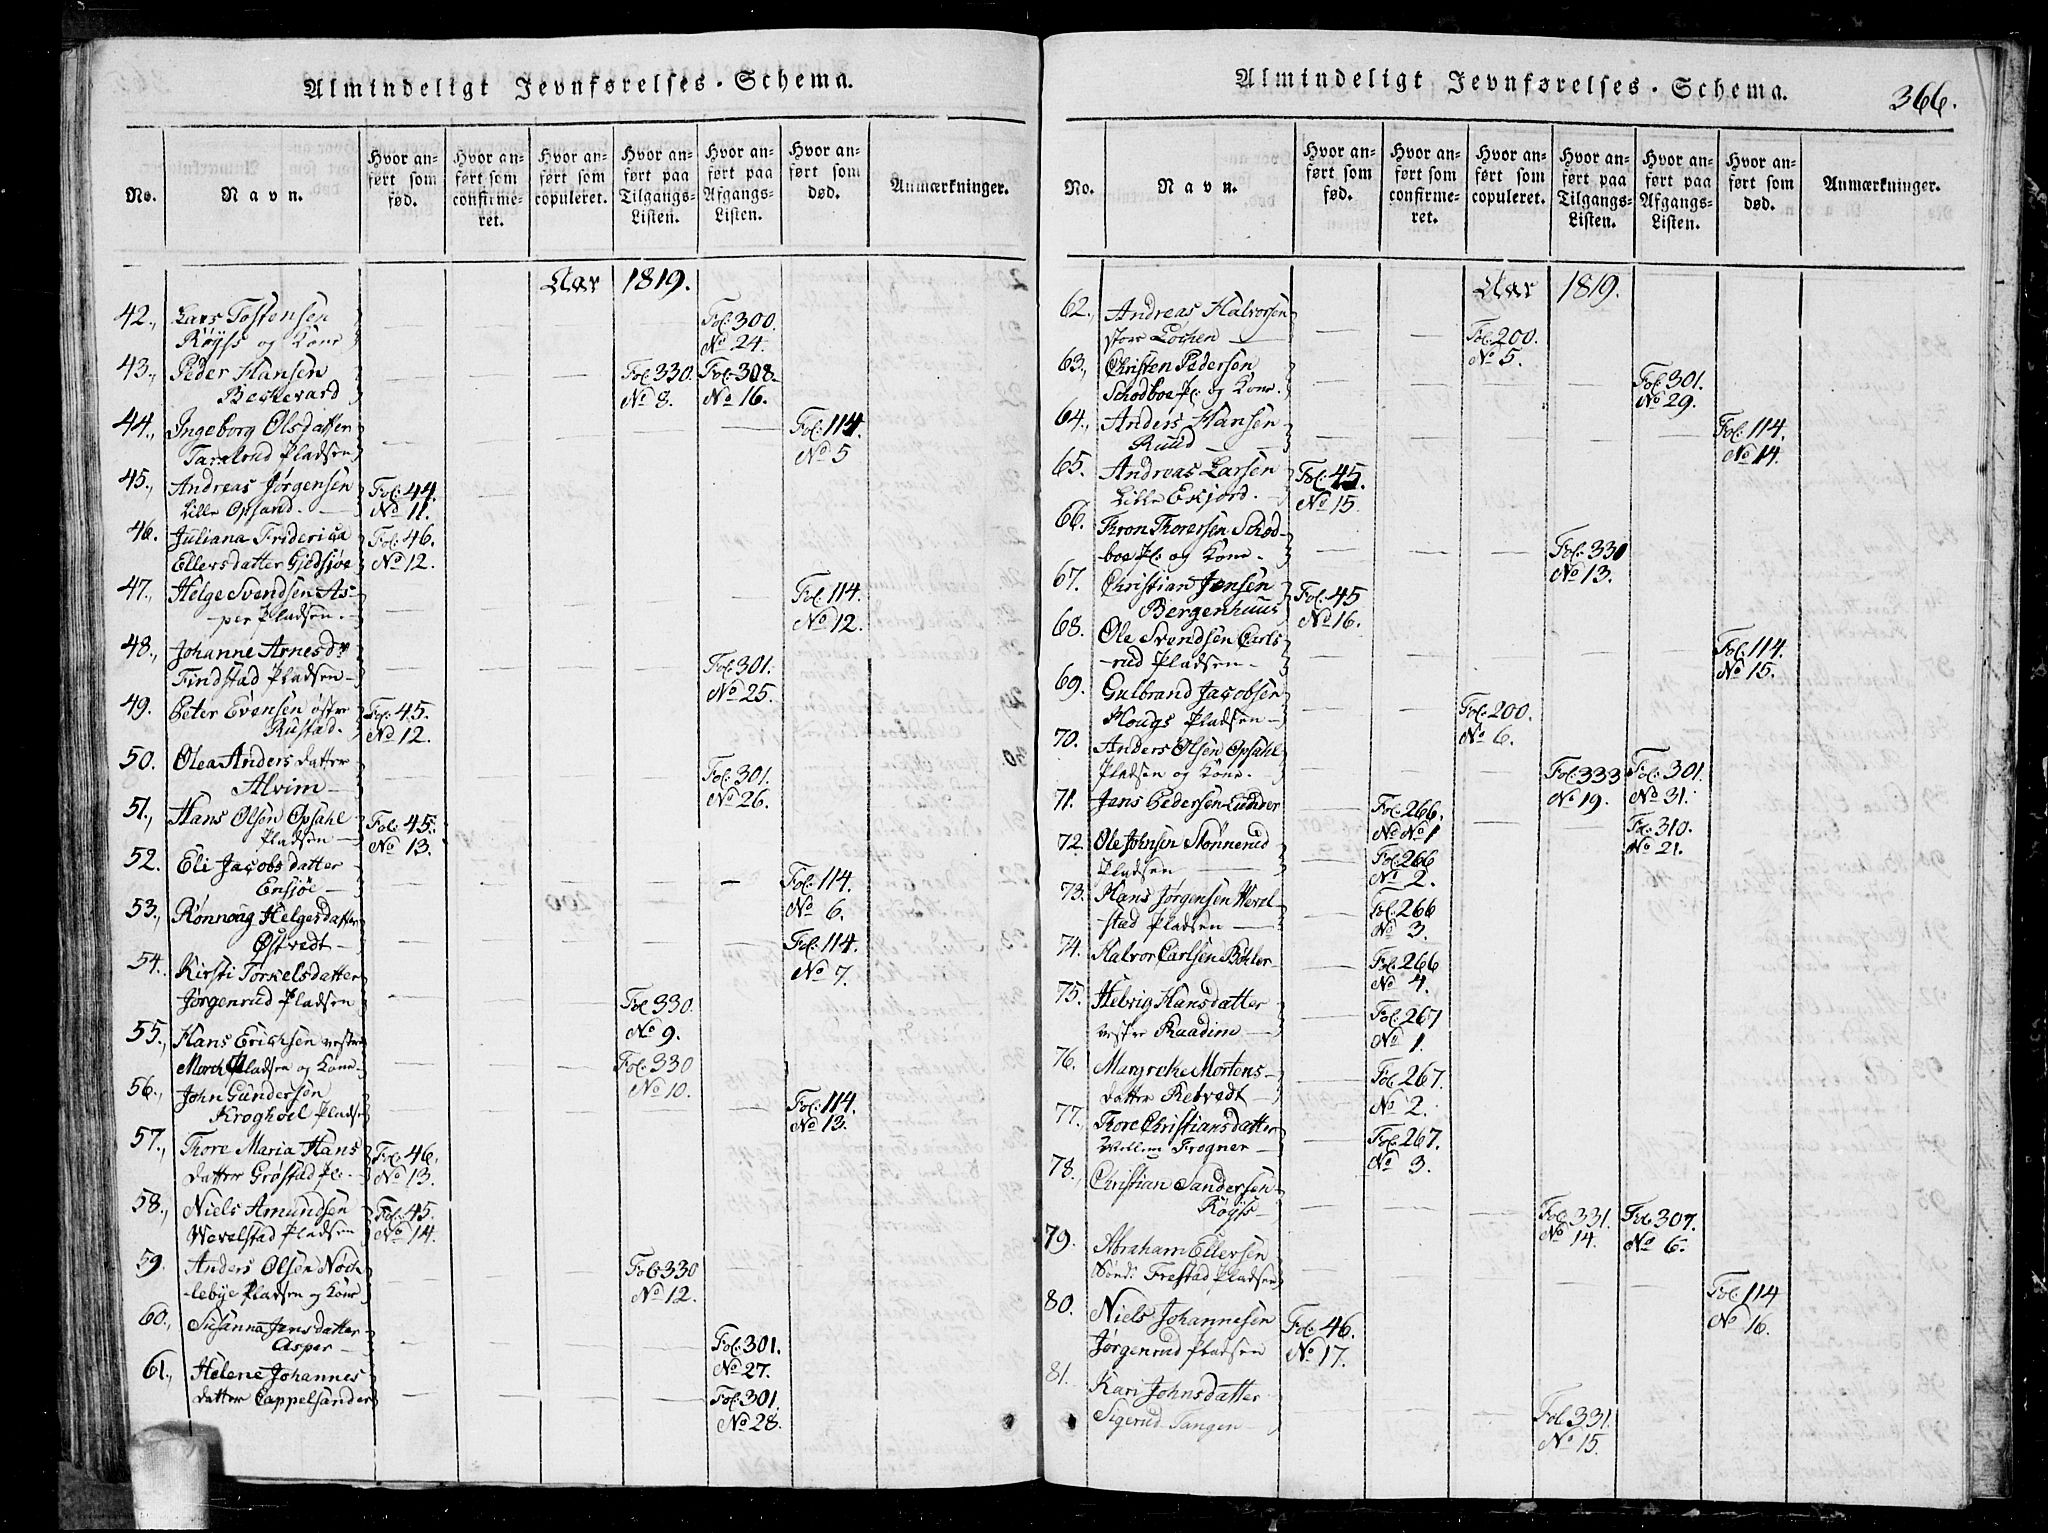 Almindeligt Jevnførelses-Schema.
No.
Navn.
Hvor an-
ført som
fød.
Hvor an-
ført som
confirme-
ret.
Hvor an-
ført som
copuleret.
Hvor an-
ført paa
Tilgangs-
Listen.
Hvor an-
ført paa
Afgangs-
Listen.
Hvor an-
ført som
død.
Anmærkninger.
Aar 1819.
42., Lars Tostensen
Røyss og Kone Fol: 300.
No 24.
43., Peder Hansen Fol: 330. Fol: 308.
Beskerard No 8. No 16.
44., Ingeborg Olsdatter Fol: 114.
Taralrud Pladsen No 5
45., Andreas Jørgensen Fol: 44.
Lille Opsand. No 11.
46. Juliana Friderica Fol: 46.
Ellersdatter Gjedsjøe No 12.
47., Helge Svendsen As- Fol: 114.
per Pladsen. No 12.
48., Johanne Arnesdr Fol: 301.
Findstad Pladsen No 25.
49. Peter Evensen østre Fol: 45.
Rustad. No 12.
50. Olea Andersdatter Fol: 301.
Alvim No 26.
51., Hans Olsen Opsahl Fol: 45.
Pladsen No 13.
52. Eli Jacobsdatter Fol: 114.
Ensjøe No 6.
53., Rønnoug Helgesdatter Fol: 114.
Østvedt No 7.
54. Kirsti Torkelsdatter Fol 330.
Jørgenrud Pladsen No 9.
55., Hans Erichsen vestre Fol: 330
Morch Pladsen og Kone No 10.
56., John Gundersen Fol: 114.
Kroghoel Pladsen No 13.
57., Thore Maria Hans Fol: 46.
datter Grøstad Pl: No 13.
58., Niels Amundsen Fol: 45.
Wevelstad Pladsen No 14.
59. Anders Olsen Nøch- Fol: 330
lebye Pladsen og Kone No 12.
60., Susanna Jansdatter Fol: 301.
Asper No 27.
61., Helene Johannes Fol: 301.
datter Cappelsander No 28.
Almindeligt Jevnførelses-Schema.
366.
No.
Navn.
Hvor an-
ført som
fød.
Hvor an-
ført som
confirme-
ret.
Hvor an-
ført som
copuleret.
Hvor an-
ført paa
Tilgangs-
Listen.
Hvor an-
ført paa
Afgangs-
Listen.
Hvor an-
ført som
død.
Anmærkninger.
Aar 1819.
62., Andreas Halvorsen Fol: 200.
store Lochen No 5.
63., Christen Pedersen Fol: 301.
Schodboe Pl: og Kone. No 29.
64., Anders Hansen Fol: 114.
Ruud No 14.
65. Andreas Larsen Fol: 45.
Lille Eskjord. No 15.
66. Thron Thoresen Schod- Fol: 330
boe Pl: og Kone. No 13.
67. Christian Jensen Fol: 45
Bergenhuus No 16.
68. Ole Svendsen Carls- Fol: 114.
rud Pladsen No 15.
69. Gulbrand Jacobsen Fol: 200.
Hougs Pladsen No 6.
70. Anders Olsen Opsahl Fol: 333 Fol: 301.
Pladsen og Kone. No 19. No 31.
71. Jens Pedersen Lunder Fol: 266. Fol: 310.
No No 1 No 21.
72. Ole Johnsen Stønnerud Fol: 266
Pladsen No 2.
73. Hans Jørgensen Wevel- Fol: 266
stad Pladsen No 3.
74. Halvor Carlsen Bøhler Fol: 266
No 4.
75. Helvig Hansdatter Fol: 267
vestre Raadim No 1.
76. Margrethe Mortens- Fol: 267.
datter Retvedt No 2.
77. Thore Christiansdatter Fol: 267.
Frogner No 3.
78. Christian Sandersen Fol: 331. Fol: 307.
Røyss No 14. No 6.
79. Abraham Ellersen Fol: 114
Sønd: Frestad Pladsen No 16.
80. Niels Johannesen Fol: 46.
Jørgenrud Pladsen No 17.
81. Kari Johnsdatter Fol 331.
Sigerud Tangen No 15.